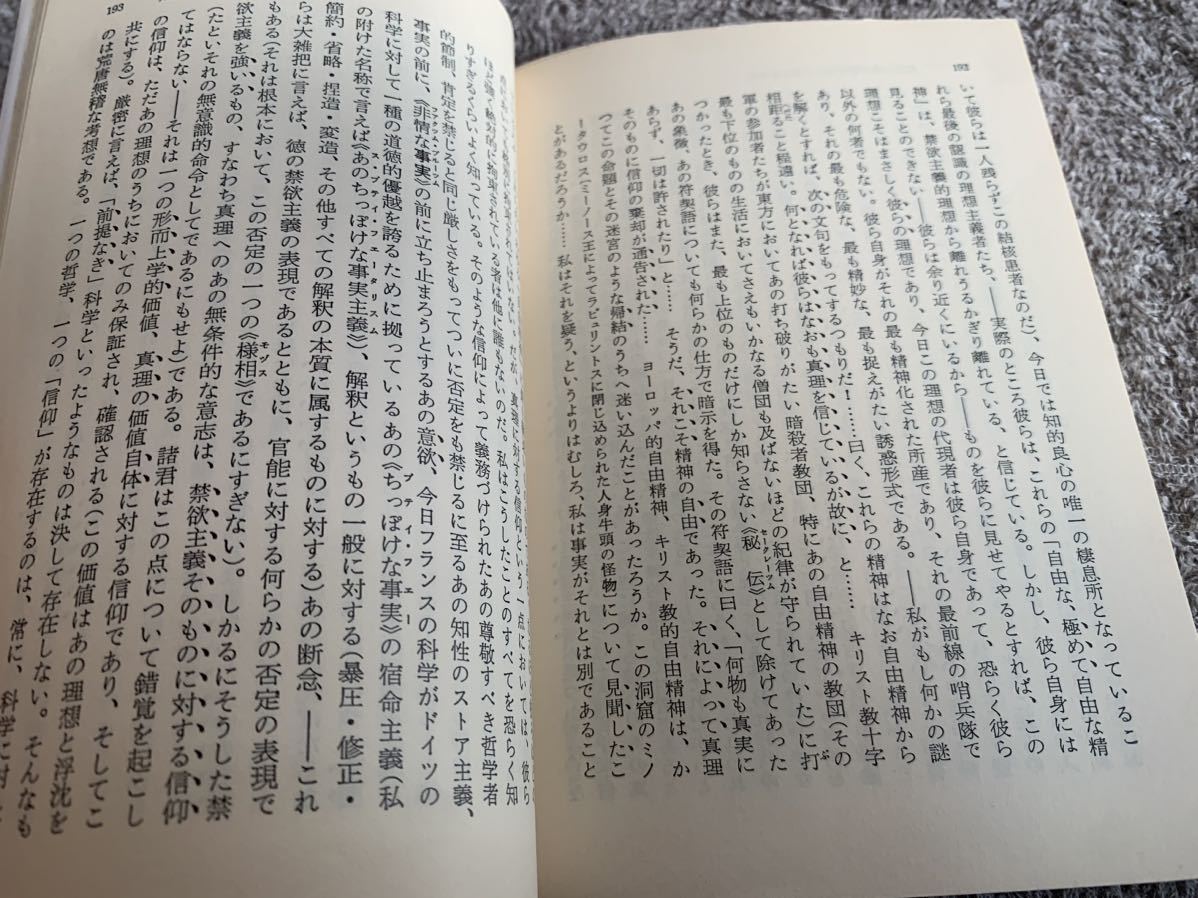 192
いて彼らは一人残らずこの結核患者なのだ)、今日では知的良心の唯一の棲息所となっているこ
れら最後の認識の理想主義者たち、――実際のところ彼らは、これらの「自由な、極めて自由な精
神」は、禁欲主義的理想から離れうるかぎり離れている、と信じている。しかし、彼ら自身には
見ることのできない――彼らは余り近くにいるから――ものを彼らに見せてやるとすれば、この
理想こそはまさしく彼らの理想であり、今日この理想の代現者は彼ら自身であって、恐らく彼ら
以外の何者でもない。彼ら自身がそれの最も精神化された所産であり、それの最前線の哨兵隊で
あり、それの最も危険な、最も精妙な、最も捉えがたい誘惑形式である。――私がもし何かの謎
を解くとすれば、次の文句をもってするつもりだ!……曰く、これらの精神はなお自由精神から
相距ること程遠い。何となれば彼らはなお真理を信じているが故に、と…… キリスト教十字
軍の参加者たちが東方においてあの打ち破りがたい暗殺者教団、特にあの自由精神の教団(その
最も下位のものの生活においてさえもいかなる僧団も及ばないほどの紀律が守られていた)に打
つかったとき、彼らはまた、最も上位のものだけにしか知らさない《秘伝》として除けてあった
あの象徴、あの符契語についても何らかの仕方で暗示を得た。その符契語に曰く、「何物も真実に
あらず、一切は許されたり」と…… そうだ、それこそ精神の自由であった。それによって真理
そのものに信仰の棄却が通告された…… ヨーロッパ的自由精神、キリスト教的自由精神は、か
つてこの命題とその迷宮のような帰結のうちへ迷い込んだことがあったろうか。この洞窟のミノ
ータウロス〔ミーノース王によってラビュリントスに閉じ込められた人身牛頭の怪物〕について見聞したこ
とがあるだろうか…… 私はそれを疑う、というよりはむしろ、私は事実がそれとは別であること
ほど強く絶対的に拘束されている者は他に誰もないのだ。私はこうしたことのすべてを恐らく知
りすぎるくらいよく知っている。そのような信仰によって義務づけられたあの尊敬すべき哲学者
的節制、肯定を禁じると同じ厳しさをもってついに否定をも禁じるに至るあの知性のストア主義、
事実の前に、《非情な事実》の前に立ち止まろうとするあの意欲、今日フランスの科学がドイツの
科学に対して一種の道徳的優越を誇るために拠っているあの《ちっぽけな事実》の宿命主義(私
の附けた名称で言えば《あのちっぽけな事実主義》)、解釈というもの一般に対する(暴圧・修正・
簡約・省略・捏造・変造、その他すべての解釈の本質に属するものに対する)あの断念、――これ
らは大雑把に言えば、徳の禁欲主義の表現であるとともに、官能に対する何らかの否定の表現で
もある(それは根本において、この否定の一つの《様相》であるにすぎない)。しかるにそうした禁
欲主義を強いるもの、すなわち真理へのあの無条件的な意志は、禁欲主義そのものに対する信仰
(たといそれの無意識的命令としてであるにもせよ)である。諸君はこの点について錯覚を起こし
てはならない――それは一つの形而上学的価値、真理の価値自体に対する信仰であり、そしてこ
の信仰は、ただあの理想のうちにおいてのみ保証され、確認される(この価値はあの理想と浮沈を
共にする)。厳密に言えば、「前提なき」科学といったようなものは決して存在しない。そんなも
のは荒唐無稽な考想である。一つの哲学、一つの「信仰」が存在するのは、常に、科学に対
193